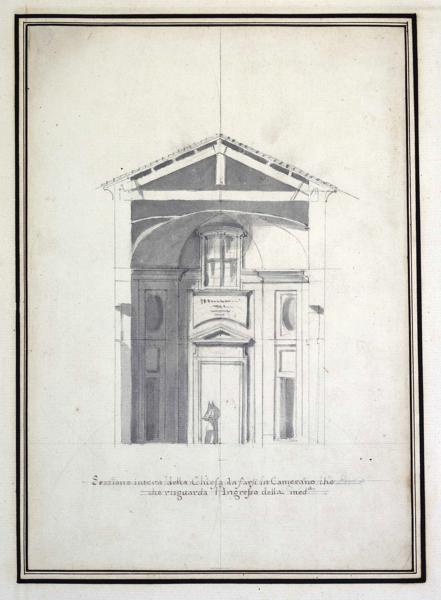 Sezzione interna della Chiesa da farsi in Camerano che
che risguarda l'Ingresso della med.ª